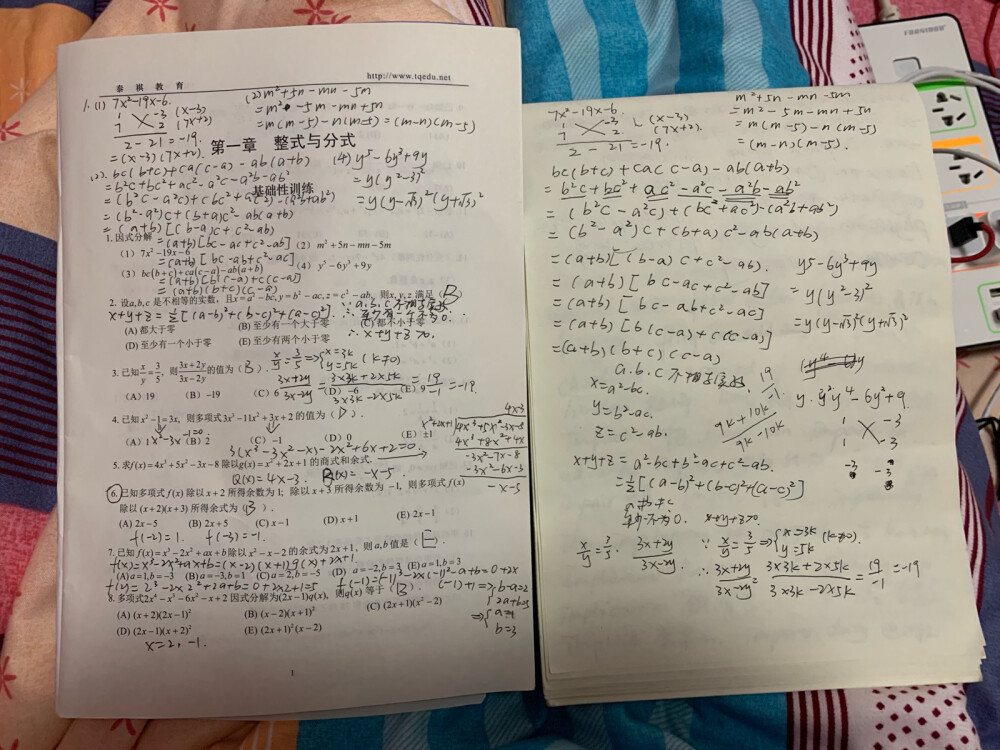 泰祺教育
http://www.tqedu.net
1.(1) 7x²-19x-6.
1 -3 (x-3)
7 2 (7x+2)
2-21=-19.
=(x-3)(7x+2).
(2) m²+5n-mn-5m
=m²-5m-mn+5n
=m(m-5)-n(m-5)=(m-n)(m-5)
第一章 整式与分式
(3). bc(b+c)+ca(c-a)-ab(a+b)
=b²c+bc²+ac²-a²c-a²b-ab²
=(b²c-a²c)+(bc²+ac²)-(a²b+ab²)
=(b²-a²)c+(b+a)c²-ab(a+b)
=(a+b)[(b-a)c+c²-ab)
=(a+b)[bc-ac+c²-ab]
=(a+b)[bc-ab+c²-ac]
=(a+b)[b(c-a)+c(c-a)]
=(a+b)(b+c)(c-a)
(4) y⁵-6y³+9y
=y(y²-3)²
=y(y-√3)²(y+√3)²
基础性训练
1. 因式分解
(1) 7x²-19x-6 (2) m²+5n-mn-5m
(3) bc(b+c)+ca(c-a)-ab(a+b) (4) y⁵-6y³+9y
2. 设a,b,c是不相等的实数，且x=a²-bc,y=b²-ac,z=c²-ab，则x,y,z满足 (B)
x+y+z=½[(a-b)²+(b-c)²+(a-c)²]. ∵a.b.c不相等实数
∴x+y+z>0.
(A) 都大于零 (B) 至少有一个大于零 (C) 都不小于零
(D) 至少有一个小于零 (E) 至少有两个小于零
3. 已知x/y=3/5，则(3x+2y)/(3x-2y)的值为 (B).
x/y=3/5⇒{x=3k y=5k (k≠0)
(3x+2y)/(3x-2y)=(3×3k+2×5k)/(3×3k-2×5k)=19/-1=-19.
(A) 19 (B) -19 (C) 6 (D) -6 (E) 9
4. 已知x²-1=3x，则多项式3x³-11x²+3x+2的值为 (D).
x²-3x-1=0
(A) 1 (B) 2 (C) -1 (D) 0 (E) ±1
3(x³-3x²-x)-2x²+6x+2=0.
5. 求f(x)=4x³+5x²-3x-8除以g(x)=x²+2x+1的商式和余式.
Q(x)=4x-3. R(x)=-x-5.
4x-3
x²+2x+1 4x³+5x²-3x-8
4x³+8x²+4x
-3x²-7x-8
-3x²-6x-3
-x-5
6. 已知多项式f(x)除以x+2所得余数为1；除以x+3所得余数为-1，则多项式f(x)
除以(x+2)(x+3)所得余式为 (B).
(A) 2x-5 (B) 2x+5 (C) x-1 (D) x+1 (E) 2x-1
f(-2)=1. f(-3)=-1.
7. 已知f(x)=x³-2x²+ax+b除以x²-x-2的余式为2x+1，则a,b值是 (E).
f(x)=x³-2x²+ax+b=(x-2)(x+1)q(x)+2x+1
(A) a=1,b=-3 (B) a=-3,b=1 (C) a=2,b=-5 (D) a=-2,b=3 (E) a=1,b=3
f(2)=2³-2×2²+2a+b=0+2×2+1=5 f(-1)=(-1)³-2×(-1)²-a+b=0+2×(-1)+1
⇒{b-a=2 2a+b=5
⇒{a=1 b=3
8. 多项式2x⁴-x³-6x²-x+2因式分解为(2x-1)q(x)，则q(x)等于 (B).
(A) (x+2)(2x-1)² (B) (x-2)(x+1)² (C) (2x+1)(x²-2)
(D) (2x-1)(x+2)² (E) (2x+1)²(x-2)
x=2, -1.
1
7x²-19x-6
1 -3 (x-3)
7 2 (7x+2).
2-21=-19.
m²+5n-mn-5m
=m²-5m-mn+5n
=m(m-5)-n(m-5)
=(m-n)(m-5).
bc(b+c)+ca(c-a)-ab(a+b)
=b²c+bc²+ac²-a²c-a²b-ab²
=(b²c-a²c)+(bc²+ac²)-(a²b+ab²)
=(b²-a²)c+(b+a)c²-ab(a+b)
=(a+b)[(b-a)c+c²-ab).
=(a+b)[bc-ac+c²-ab]
=(a+b)[bc-ab+c²-ac]
=(a+b)[b(c-a)+c(c-a)]
=(a+b)(b+c)(c-a)
y⁵-6y³+9y
=y(y²-3)²
=y(y-√3)²(y+√3)²
a.b.c不相等实数
x=a²-bc.
y=b²-ac.
z=c²-ab.
19
-1
9k+10k
9k-10k
y⁴-6y²+9
1 -3
1 -3
x+y+z=a²-bc+b²-ac+c²-ab.
=½[(a-b)²+(b-c)²+(a-c)²]
x+y+z>0.
x/y=3/5. (3x+2y)/(3x-2y)
∵x/y=3/5⇒{x=3k y=5k (k≠0).
∴(3x+2y)/(3x-2y)=(3×3k+2×5k)/(3×3k-2×5k)=19/-1=-19